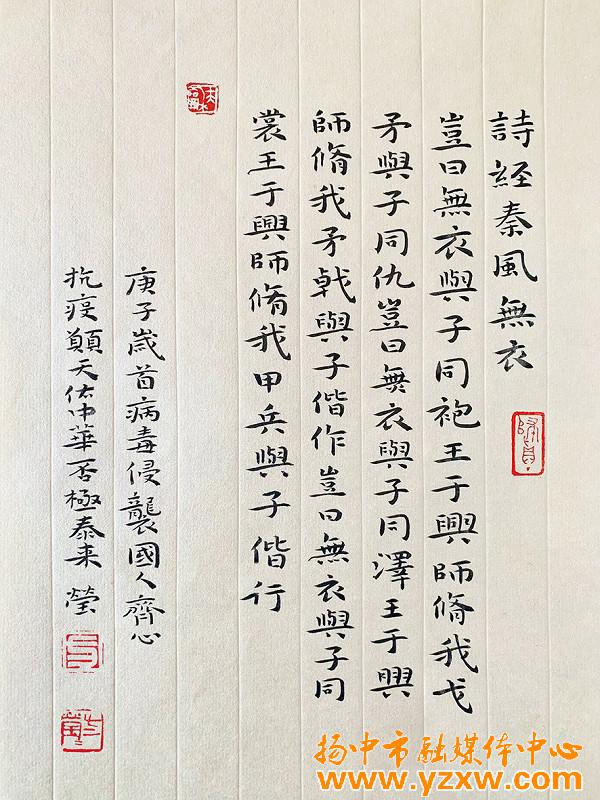 詩経秦風無衣
豈曰無衣與子同袍王于興師脩我戈
矛與子同仇豈曰無衣與子同澤王于興
師脩我矛戟與子偕作豈曰無衣與子同
裳王于興師脩我甲兵與子偕行
庚子嵗首病毒侵襲國人齊心
抗疫願天佑中華否極泰来 瑩
扬中市融媒体中心
www.yzxw.com